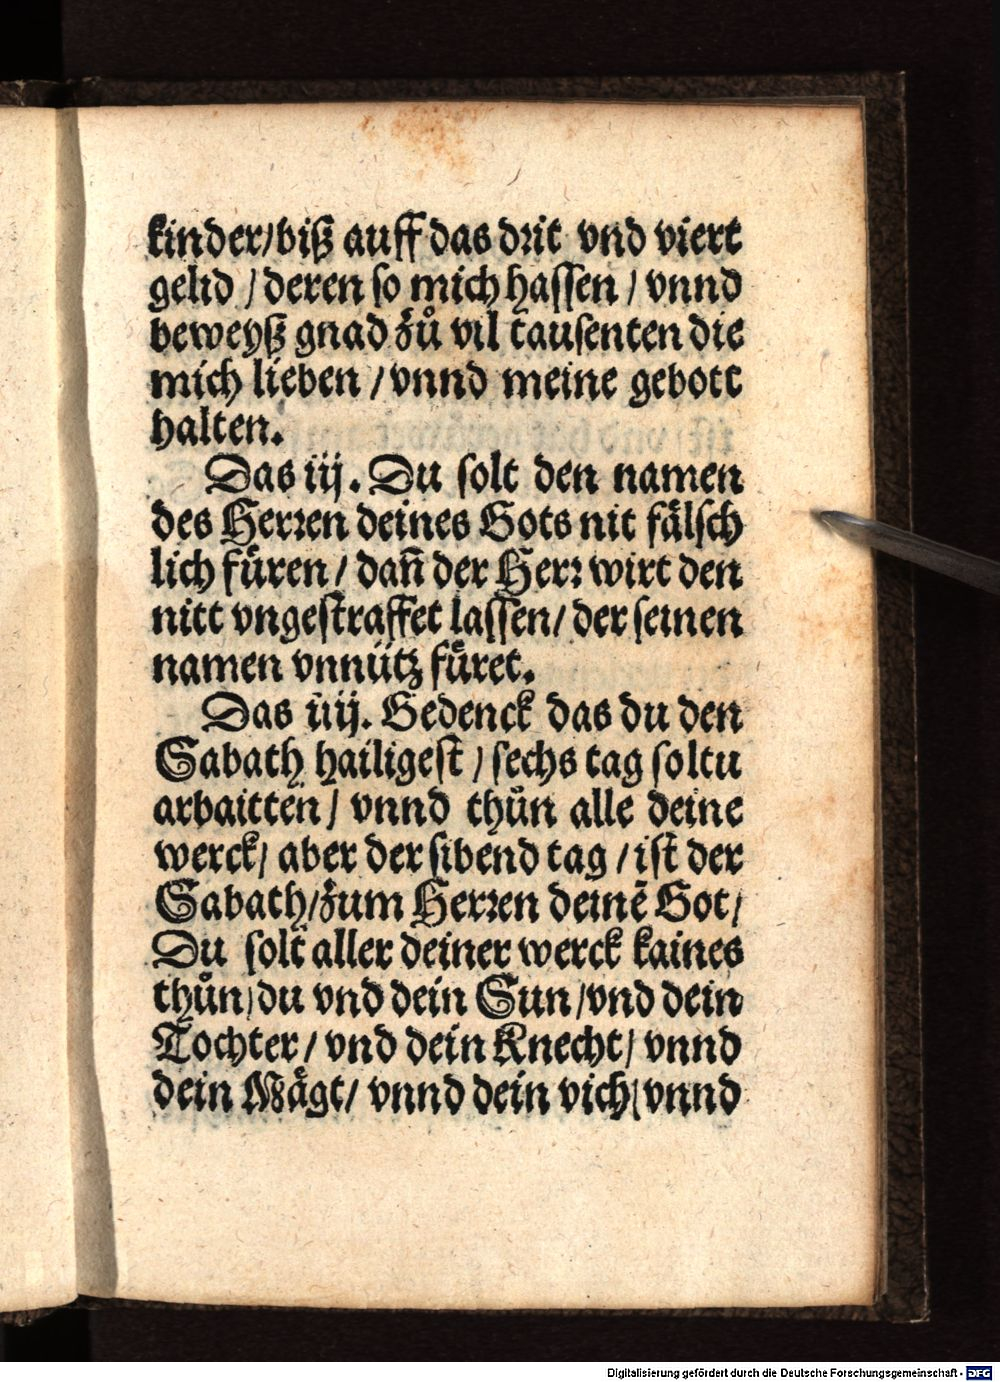 kinder/biß auff das drit vnd viert
gelid / deren so mich hassen / vnnd
beweyß gnad zů vil tausenten die
mich lieben / vnnd meine gebott
halten.
Das iij. Du solt den namen
des Herren deines Gots nit fälsch
lich füren / dañ der Herr wirt den
nitt vngestraffet lassen/ der seinen
namen vnnütz füret.
Das iiij. Gedenck das du den
Sabath hailigest / sechs tag soltu
arbaitten / vnnd thůn alle deine
werck/ aber der sibend tag / ist der
Sabath/zum Herren deinẽ Got/
Du solt aller deiner werck kaines
thůn/du vnd dein Sun/vnd dein
Tochter / vnd dein Knecht/ vnnd
dein Mägt/ vnnd dein vich/vnnd
Digitalisierung gefördert durch die Deutsche Forschungsgemeinschaft - DFG